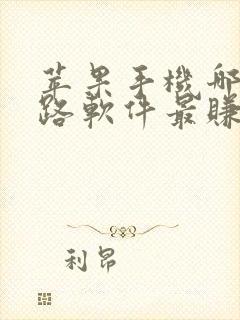 苹果手機哪
路軟件最賺
利昂